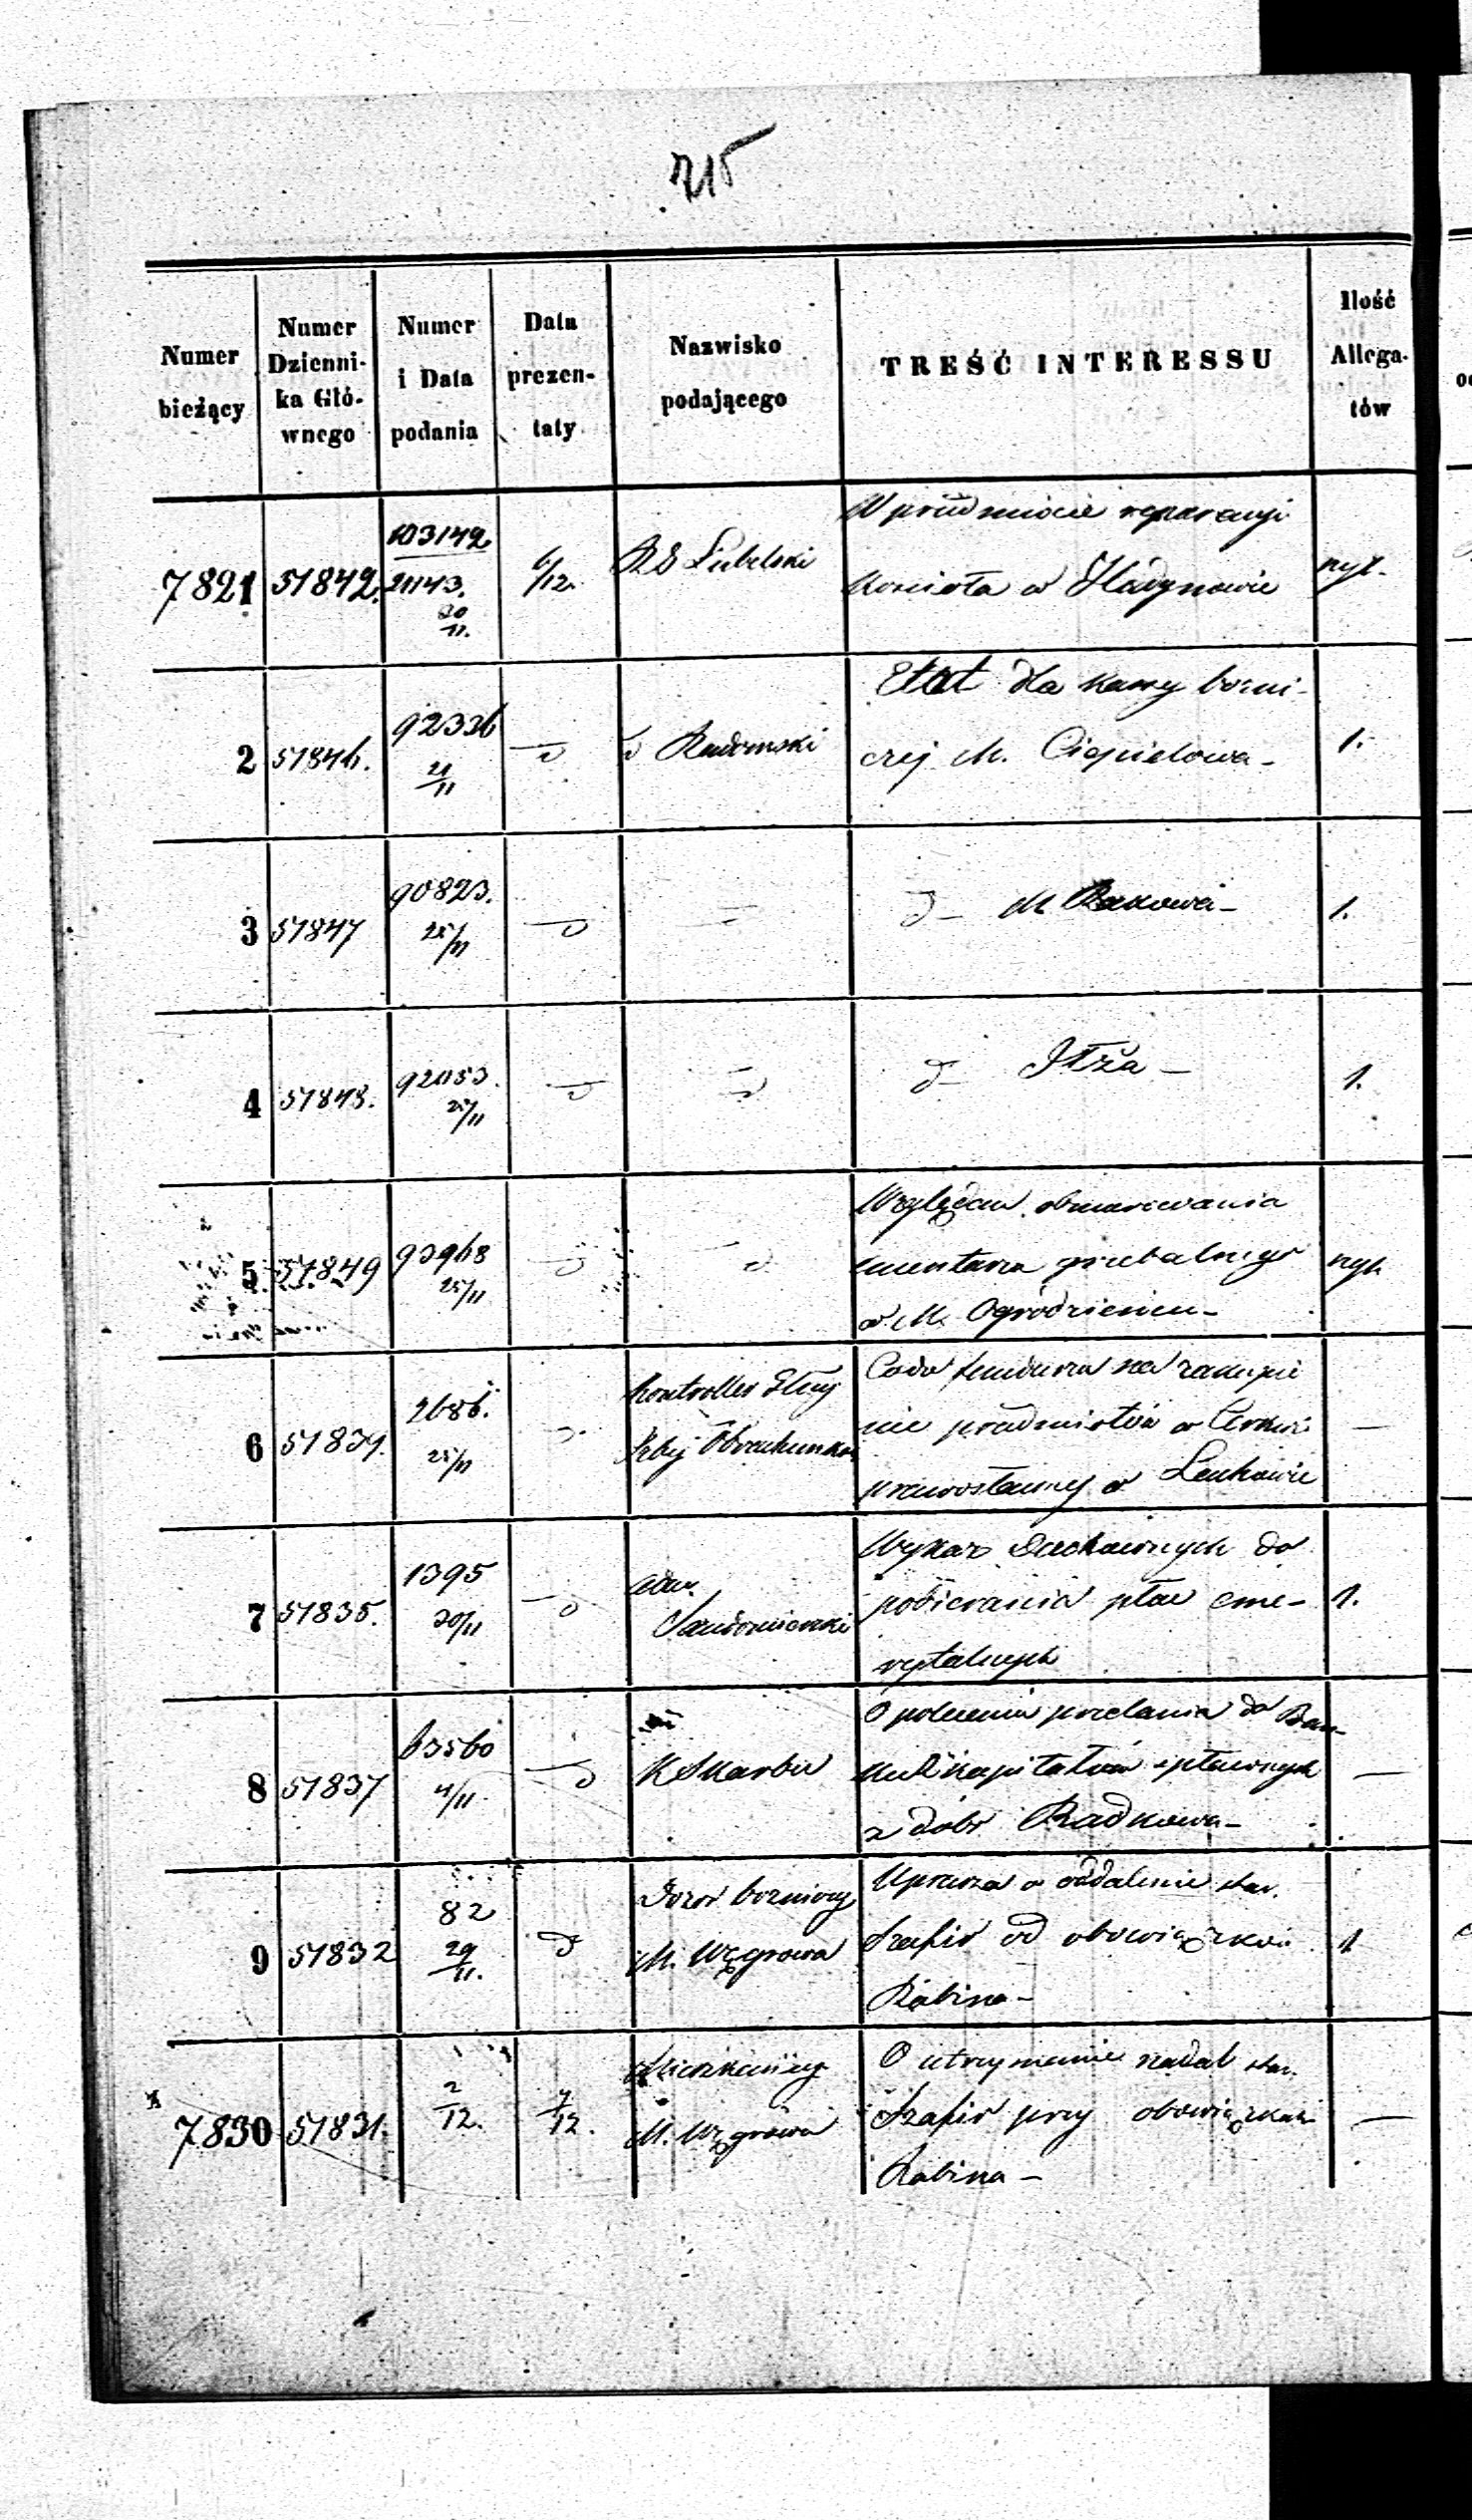 715
Numer bieżący
Numer Dzienni-ka Głó-wnego
Numer i Data podania
Data prezen-taty
Nazwisko podającego
TREŚĆ INTERESSU
Ilość Allega-tów
7821 51842. 103142 / 21143. 20/11. 6/12. R G Lubelski
W przedmiocie reparacyi
Kościoła w Hadynowie
2 51846. 92336 21/11 d d Radomski
Etat dla kassy bożni-
czej M. Ciepielowa - 1.
3 51847 90823. 25/11 d
d - M Rakowa - 1.
4 51848. 92053. 25/11 d d
d - Iłża - 1.
5 51849 93968 25/11 d d
Względem obmurowania
cmentarza grzebalnego
w M. Ogrodzieńcu -
6 51834. 2686. 25/11 d Kontroller Głny
Izby Obrachunkow
Co do funduszu na zakupie
nie przedmiotów w Cerkwi —
prawosławnej w
7 51835. 1395 30/11 d
Sandomierski
Wykaz Duchownych do
pobierania płac eme- 1.
rytalnych
8 51837 63560 4/11 d K Skarbu
O polecenie przelania do Ban-
ku kapitałów spławnych —
z dóbr Radkowa -
9 51832 82 29/11. d Dozór bożniczy
M. Węgrowa
Uprasza o oddalenie star.
Szafir od obowiązków 1
Rabina -
7830 51831. 2/12. 7/12. Mieszkańcy
M. Węgrowa
O utrzymanie nadal star.
Szafir przy obowiązkach —
Rabina -